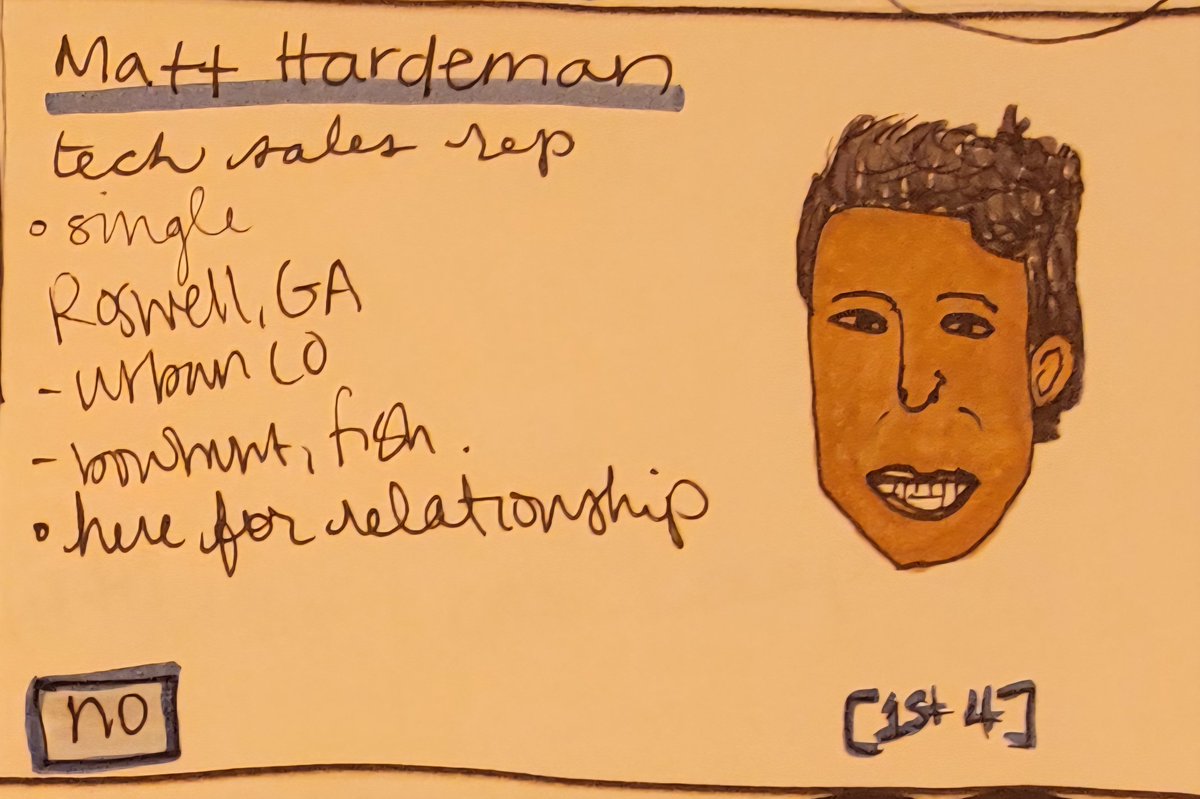 Matt Hardeman
tech sales rep
• single
Roswell, GA
- urban CO
- bowhunt, fish.
• here for relationship
no
[1st 4]